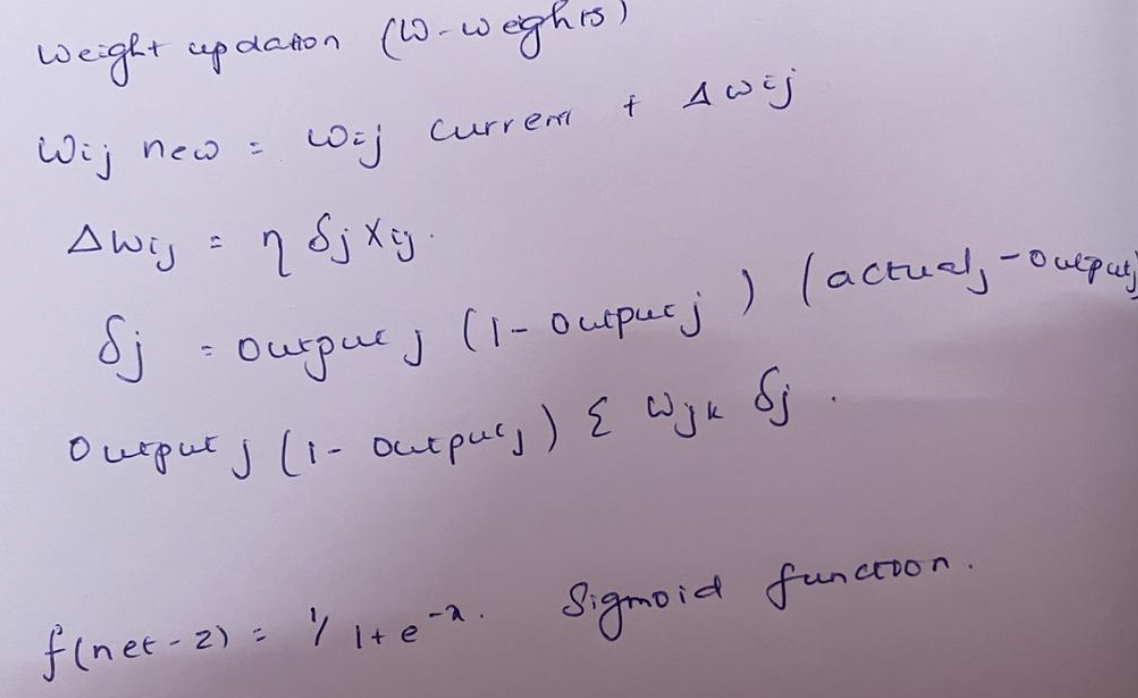 Weight updation (W-weights)
Wij new = wij current + Δwij
Δwij = η δj xij.
δj = output j (1 - output j) (actualj - outputj)
Output j (1 - outputj) Σ wjk δj.
f(net-z) = 1/1+e^-x. Sigmoid function.